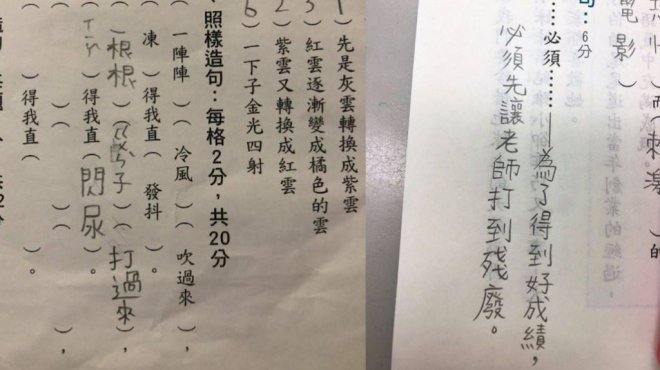 1 先是灰雲轉換成紫雲
3 紅雲逐漸變成橘色的雲
2 紫雲又轉換成紅雲
6 一下子金光四射
、照樣造句：每格2分，共20分
一陣陣 ）（ 冷風 ）（ 吹過來 ），
凍 ）得我直（ 發抖 ）。
根根 ）（ 子 ）（ 打過來 ），
）得我直（ 閃尿 ）。
）（ ）（ ），
）得我直（ ）。
）而（刺激 ）的
電影 ）
句：6分
……必須……為了得到好成績，
必須先讓老師打到殘廢。